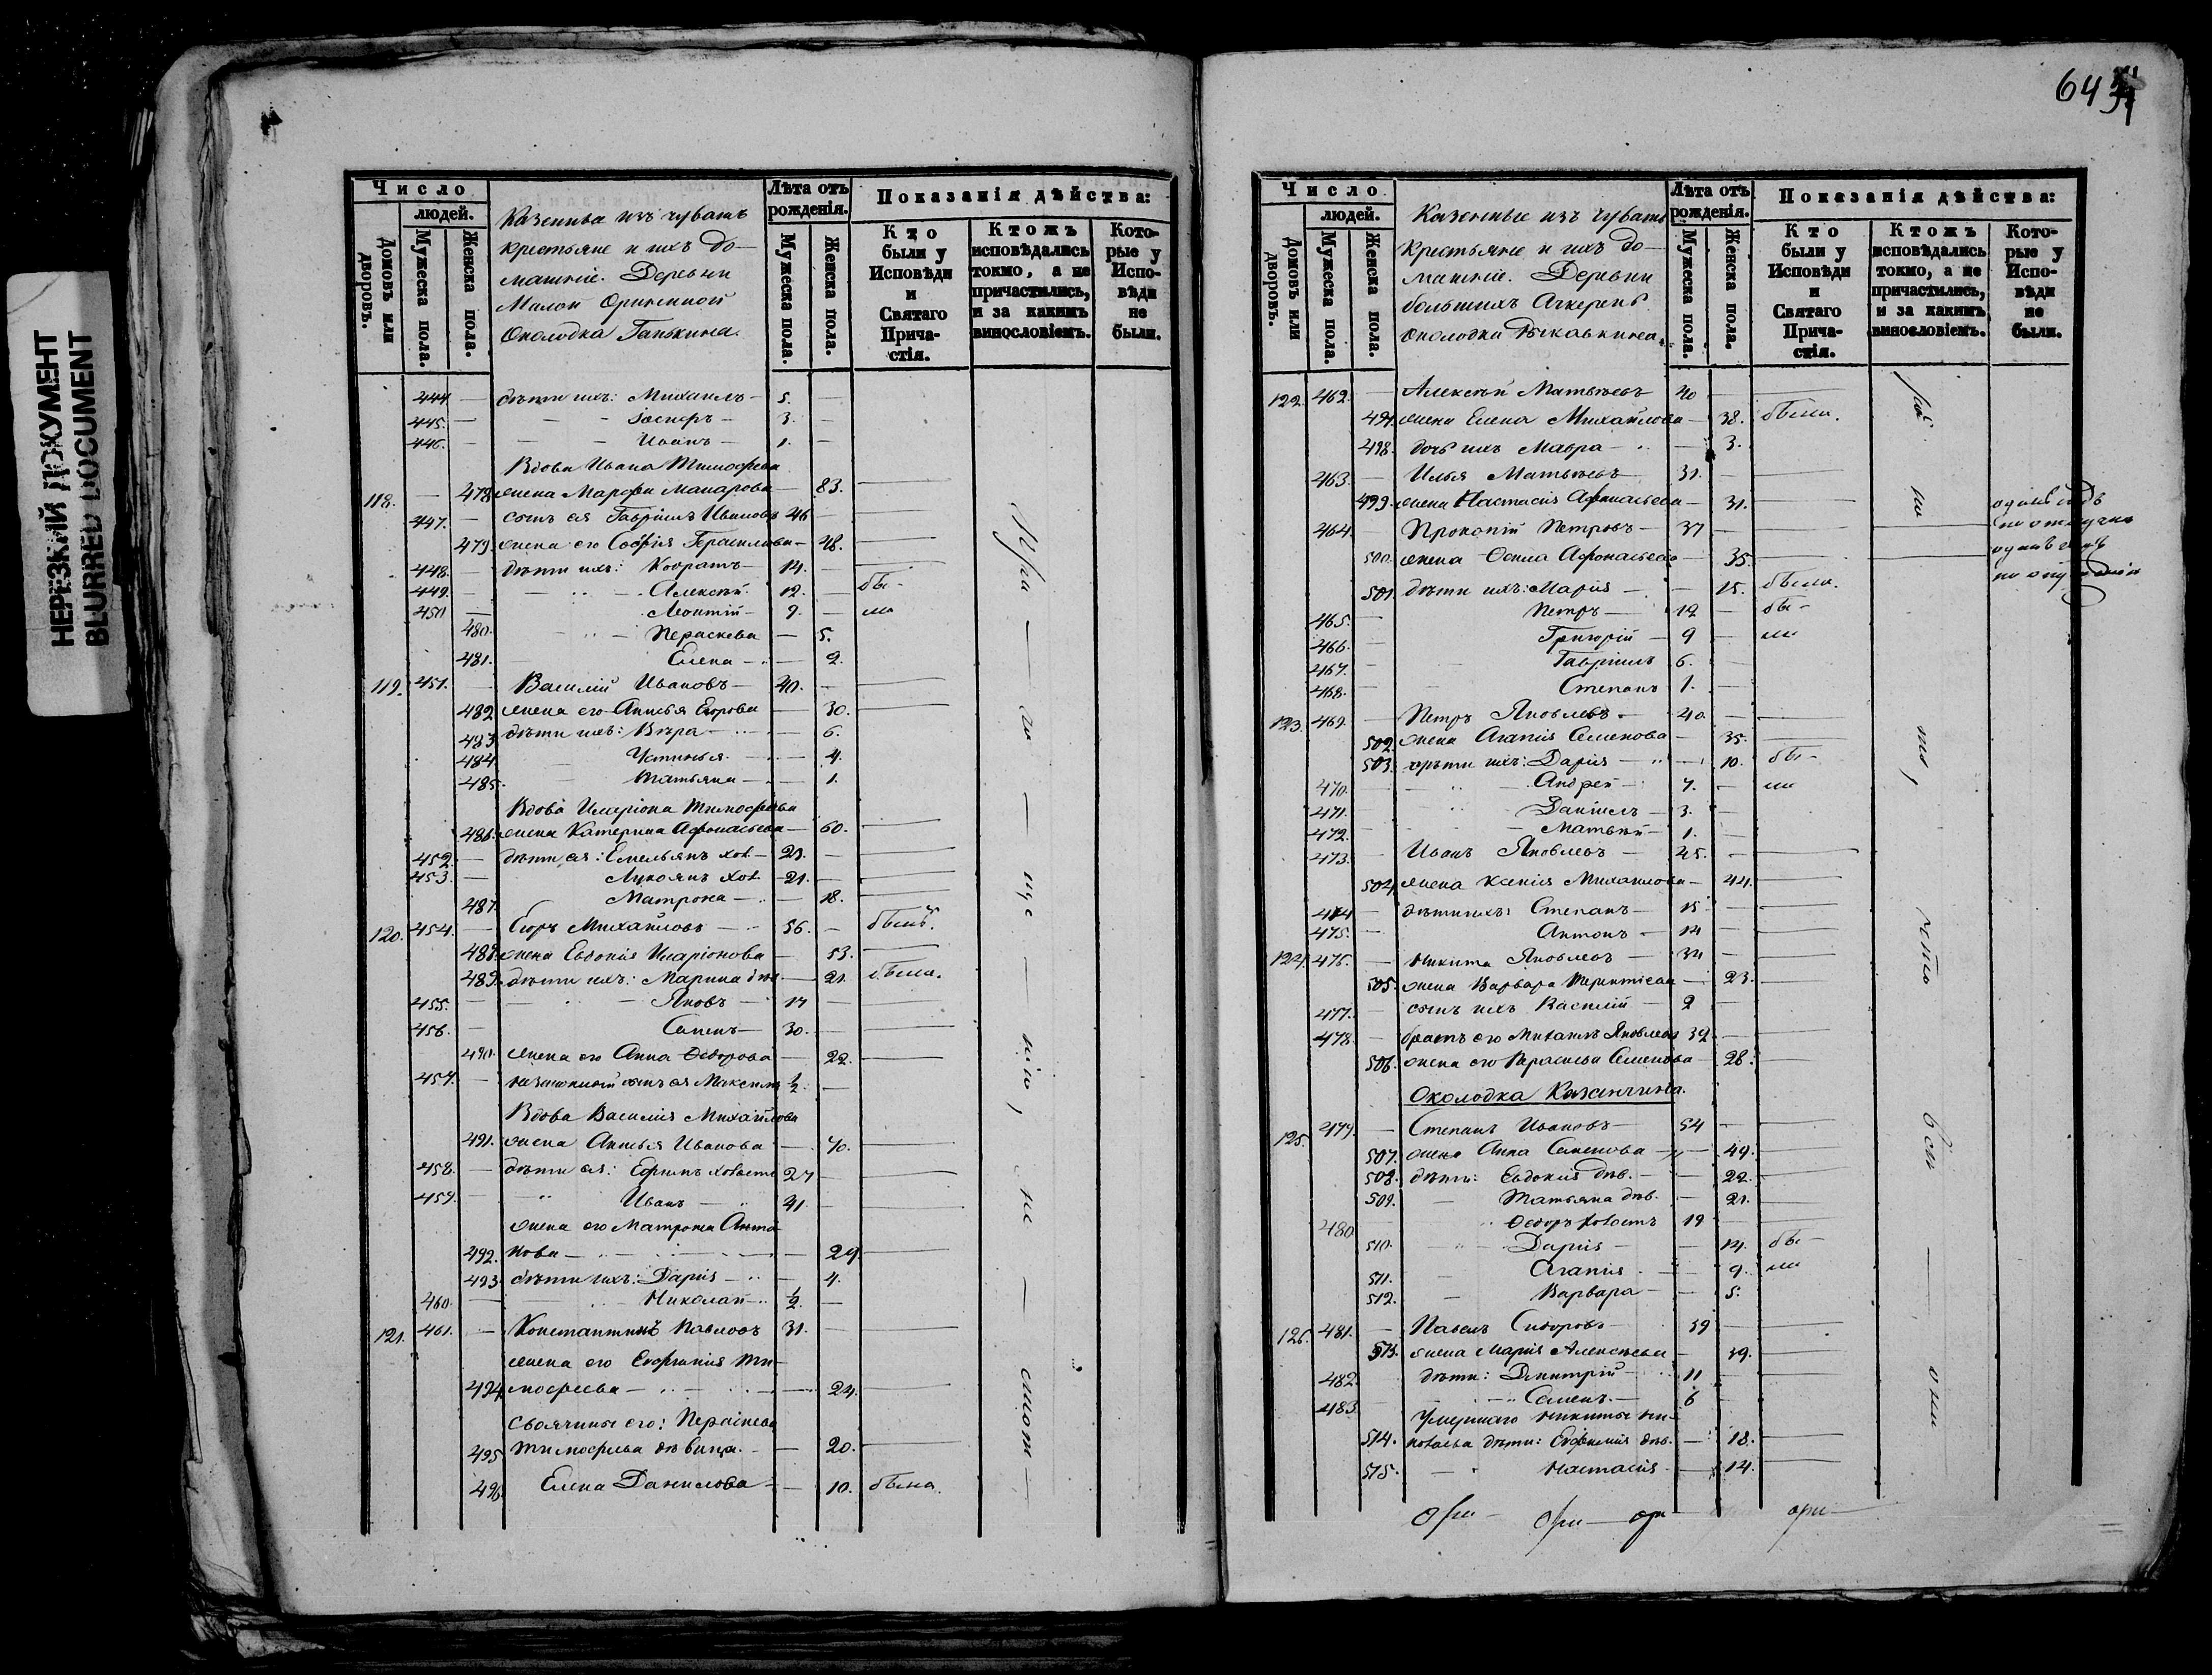 НЕРЕЗКИЙ ДОКУМЕНТ
BLURRED DOCUMENT
Число
людей.
Домовъ или дворовъ.
Мужеска пола.
Женска пола.
Казенные изъ чувашъ
крестьяне и ихъ до-
машніе. Деревни
Малой Орининой
Околодка Ганькина.
Лѣта отъ рожденія.
Мужеска пола.
Женска пола.
Показанія дѣйства:
Кто были у Исповѣди и Святаго Прича-стія.
Ктожъ исповѣдались токмо, а не причастились, и за какимъ винословіемъ.
Кото-рые у Испо-вѣди не были.
444 — дѣти ихъ: Михаилъ — 5. —
445. — Іосифъ — 3. —
446. — Иванъ — 1. —
Вдова Ивана Тимофеева
118. — 478 жена Марфа Макарова — 83.
447. — сынъ ея Гавріилъ Ивановъ 46 —
479. жена его Софія Герасимова — 48.
448. — дѣти ихъ: Кодратъ — 14. —
449. — Алексѣй 12. — бы-
450 — Леонтій — 9. — ли
480. Параскева — 5.
481. Елена — 2.
119. 451. — Василій Ивановъ — 40. —
482. жена его Анисья Егорова — 30.
483 дѣти ихъ: Вѣра — 6.
484. Устинья — 4.
485. Татьяна — 1.
Вдова Иларіона Тимофеева
486. жена Катерина Афонасьева — 60.
452. — дѣти ея: Емельянъ хол. — 23. —
453. — Лукоянъ хол. — 21. —
487. Матрона — 18.
120. 454. — Егоръ Михайловъ — 56. — былъ.
488. жена Евдокія Иларіонова — 53.
489. дѣти ихъ: Марина дѣв. — 21. была.
455. — Яковъ — 17 —
456. — Семенъ — 30. —
490. жена его Анна Ѳедорова — 22.
457. — незаконный сынъ ея Максимъ 1/2 —
Вдова Василія Михайлова
491. жена Анисья Иванова — 70.
458. — дѣти ея: Ефимъ холостъ 27 —
459. — Иванъ — 31. —
жена его Матрона Анто-
492. нова — 29.
493. дѣти ихъ: Дарія — 4.
460. — Николай — 1/2 —
121. 461. — Константинъ Павловъ 31. —
жена его Евфимія Ти-
494. мофеева — 24.
Своячины его: Параскева
495 Тимофеева дѣвица. — 20.
496 Елена Данилова — 10. была.
При — ча — ще — нію, не — смот —
64
Число
людей.
Домовъ или дворовъ.
Мужеска пола.
Женска пола.
Казенные изъ чувашъ
крестьяне и ихъ до-
машніе. Деревни
большихъ Ачкеренъ
Околодка
Лѣта отъ рожденія.
Мужеска пола.
Женска пола.
Показанія дѣйства:
Кто были у Исповѣди и Святаго Прича-стія.
Ктожъ исповѣдались токмо, а не причастились, и за какимъ винословіемъ.
Кото-рые у Испо-вѣди не были.
122. 462. — Алексѣй Матвѣевъ 40 —
497. жена Елена Михайлова — 38. была.
498. дочь ихъ Мавра — 3.
463. — Илья Матвѣевъ — 31. —
499. жена Настасія Афонасьева — 31.
464. Прокопій Петровъ — 37 одинъ годъ по отлучкѣ
500. жена Афонасьева 35. одинъ годъ по
501 дѣти ихъ: Марія — 15. была.
465. — Петръ — 12 — бы-
466. — Григорій — 9 — ли
467. — Гавріилъ 6. —
468. — Степанъ 1. —
123. 469. — Петръ Яковлевъ — 40. —
502. жена Агапія Семенова — 35.
503. дѣти ихъ: Дарія — 10. бы-
470. — Андрей — 7. — ли
471. Даніилъ — 3. —
472. — Матвѣй — 1. —
473. — Иванъ Яковлевъ — 45. —
504. жена Ксенія Михайлова — 44.
474 — дѣти ихъ: Степанъ — 15 —
475. — Антонъ — 14 —
124. 476. — Никита Яковлевъ — 34 —
505. жена Варвара Терентіева — 23.
477. — сынъ ихъ Василій — 2 —
478. — братъ его Михаилъ Яковлевъ 32. —
506. жена его Параскева Семенова — 28.
Околодка Казанчина.
125. 479. — Степанъ Ивановъ — 54 —
507. жена Анна Семенова — 49.
508. дѣти: Евдокія дѣв. — 22.
509. — Татьяна дѣв. — 21.
480. Ѳедоръ холостъ 19 —
510. — Дарія — 14. бы-
511. — Агапія — 9. ли
512. — Варвара — 5.
126. 481. — Павелъ Сидоровъ — 39 —
513. жена Марія Алексѣева — 39.
482. дѣти: Дмитрій — 11 —
483. — Семенъ — 6 —
Умершаго Никиты Ни-
514. колаева дѣти: Евфимія дѣв. — 18.
515. — Настасія — 14.